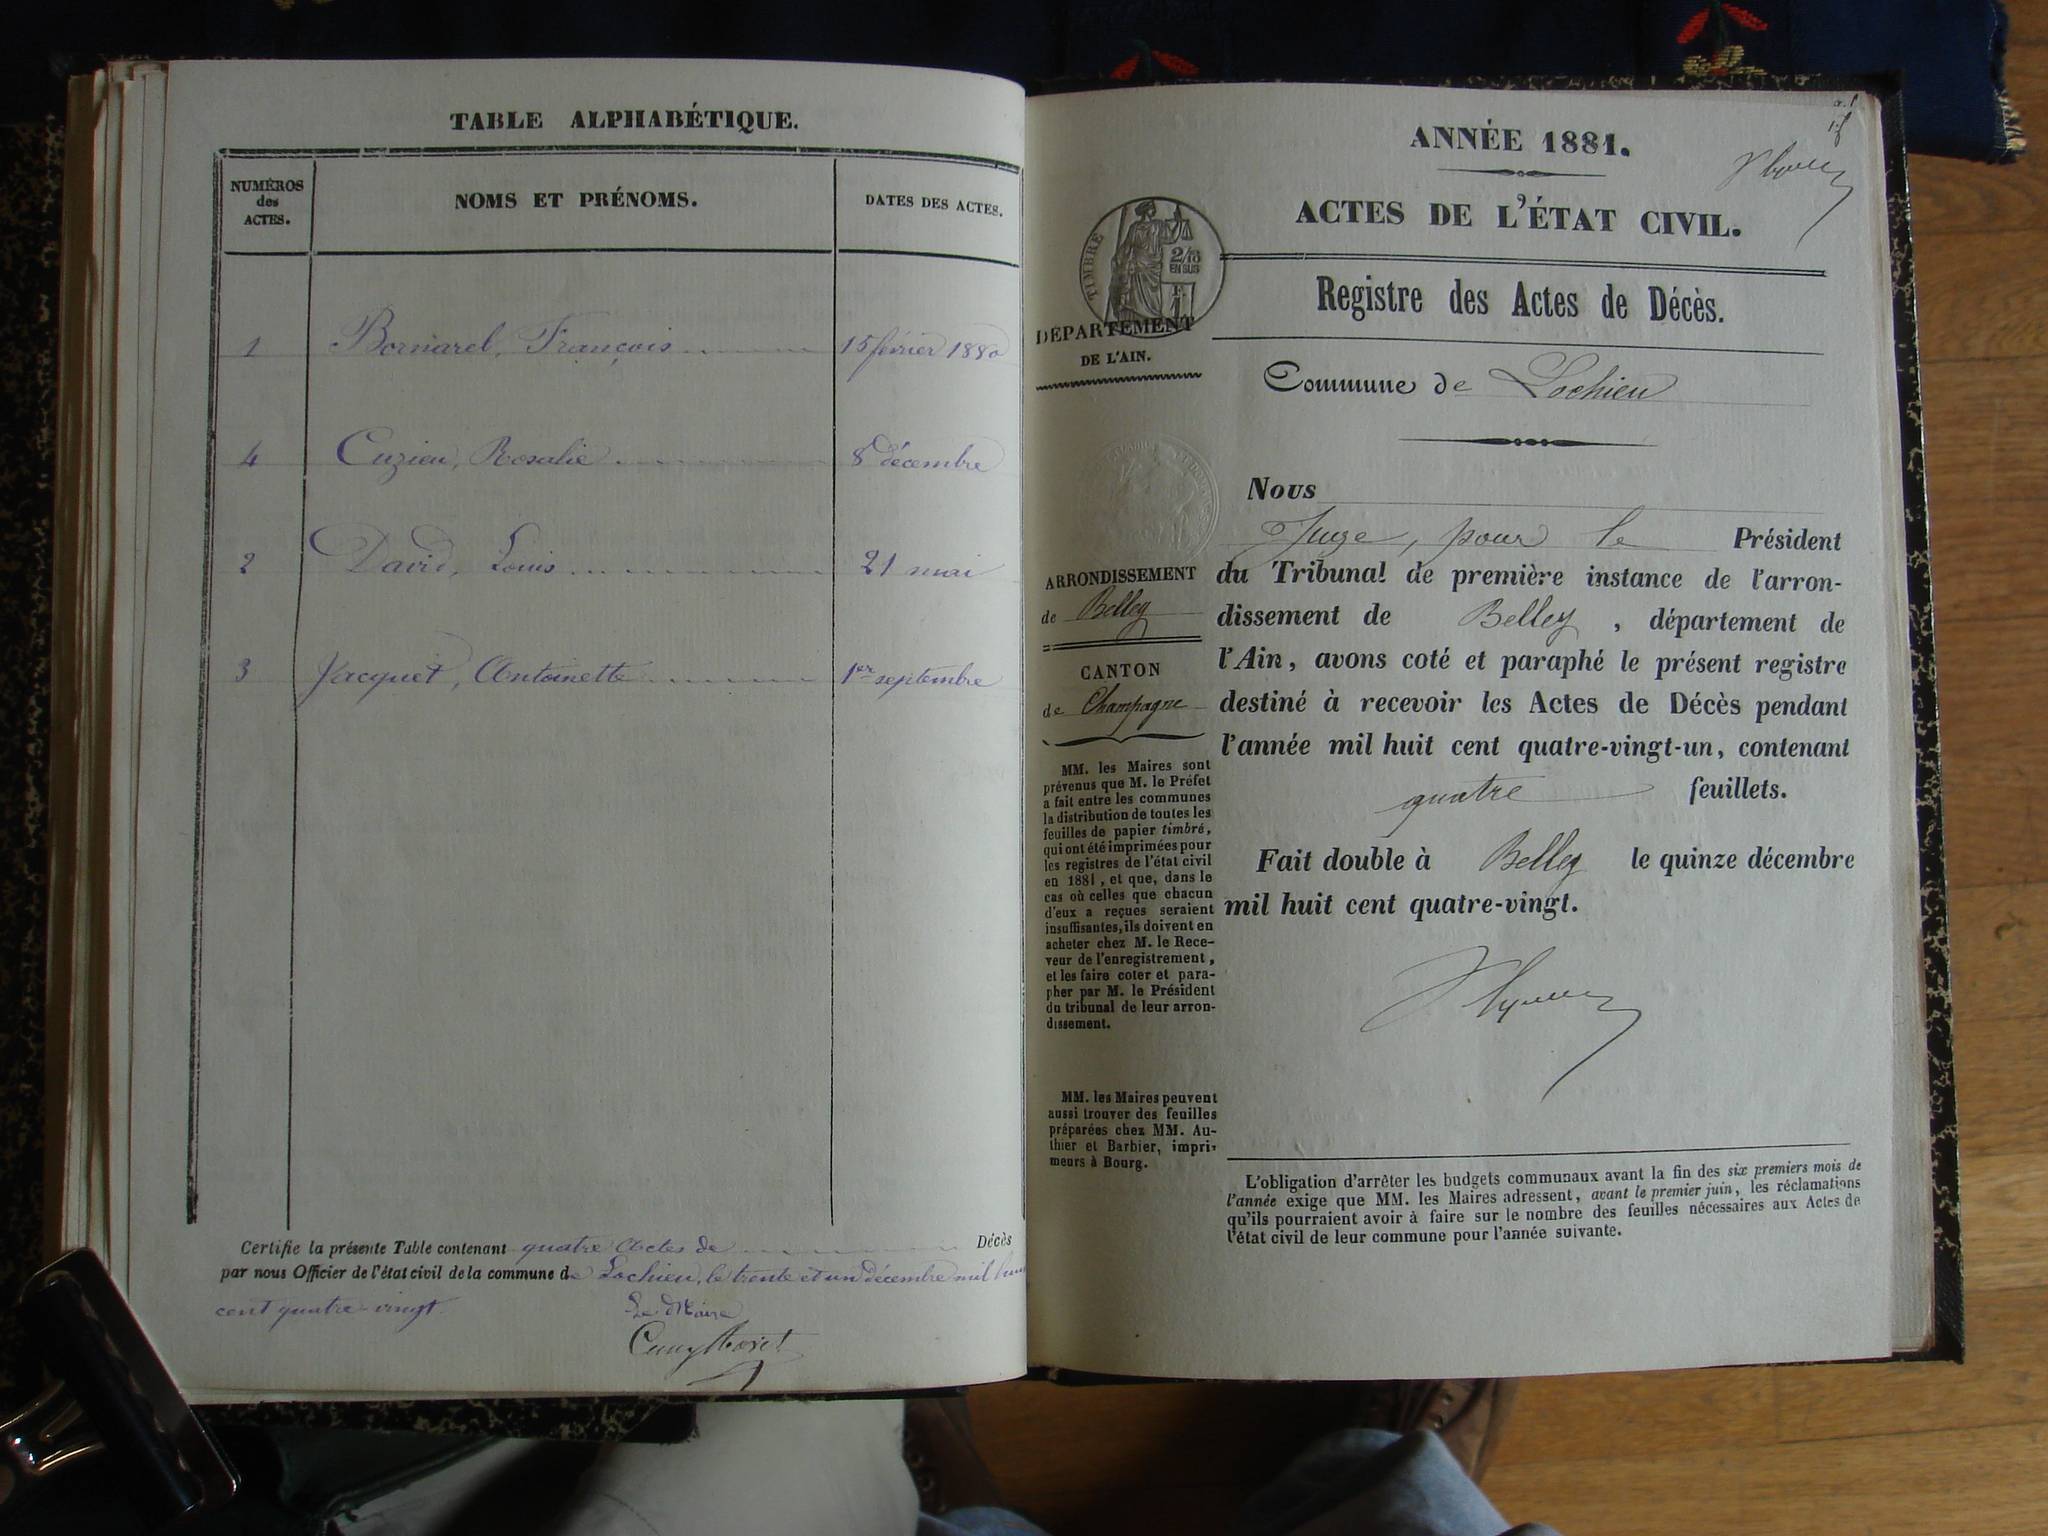 TABLE ALPHABÉTIQUE.
NUMÉROS
des
ACTES.
NOMS ET PRÉNOMS.
DATES DES ACTES.
1 Bornarel, François 15 février 1880
4 Cuzieu, Rosalie 8 décembre
2 David, Louis 21 mai
3 Jacquet, Antoinette 1er septembre
Certifie la présente Table contenant quatre Actes de Décès
par nous Officier de l'état civil de la commune de Lochieu, le trente et un décembre mil huit
cent quatre-vingt.
Le Maire
ANNÉE 1881.
ACTES DE L'ÉTAT CIVIL.
TIMBRE
2/10
EN SUS
Registre des Actes de Décès.
DÉPARTEMENT
DE L'AIN.
Commune de Lochieu
Nous
Juge, pour le Président
du Tribunal de première instance de l'arron-
dissement de Belley, département de
l'Ain, avons coté et paraphé le présent registre
destiné à recevoir les Actes de Décès pendant
l'année mil huit cent quatre-vingt-un, contenant
quatre feuillets.
Fait double à Belley le quinze décembre
mil huit cent quatre-vingt.
ARRONDISSEMENT
de Belley
CANTON
de Champagne
MM. les Maires sont
prévenus que M. le Préfet
a fait entre les communes
la distribution de toutes les
feuilles de papier timbré,
qui ont été imprimées pour
les registres de l'état civil
en 1881, et que, dans le
cas où celles que chacun
d'eux a reçues seraient
insuffisantes, ils doivent en
acheter chez M. le Rece-
veur de l'enregistrement,
et les faire coter et para-
pher par M. le Président
du tribunal de leur arron-
dissement.
MM. les Maires peuvent
aussi trouver des feuilles
préparées chez MM. Au-
thier et Barbier, impri-
meurs à Bourg.
L'obligation d'arrêter les budgets communaux avant la fin des six premiers mois de
l'année exige que MM. les Maires adressent, avant le premier juin, les réclamations
qu'ils pourraient avoir à faire sur le nombre des feuilles nécessaires aux Actes de
l'état civil de leur commune pour l'année suivante.